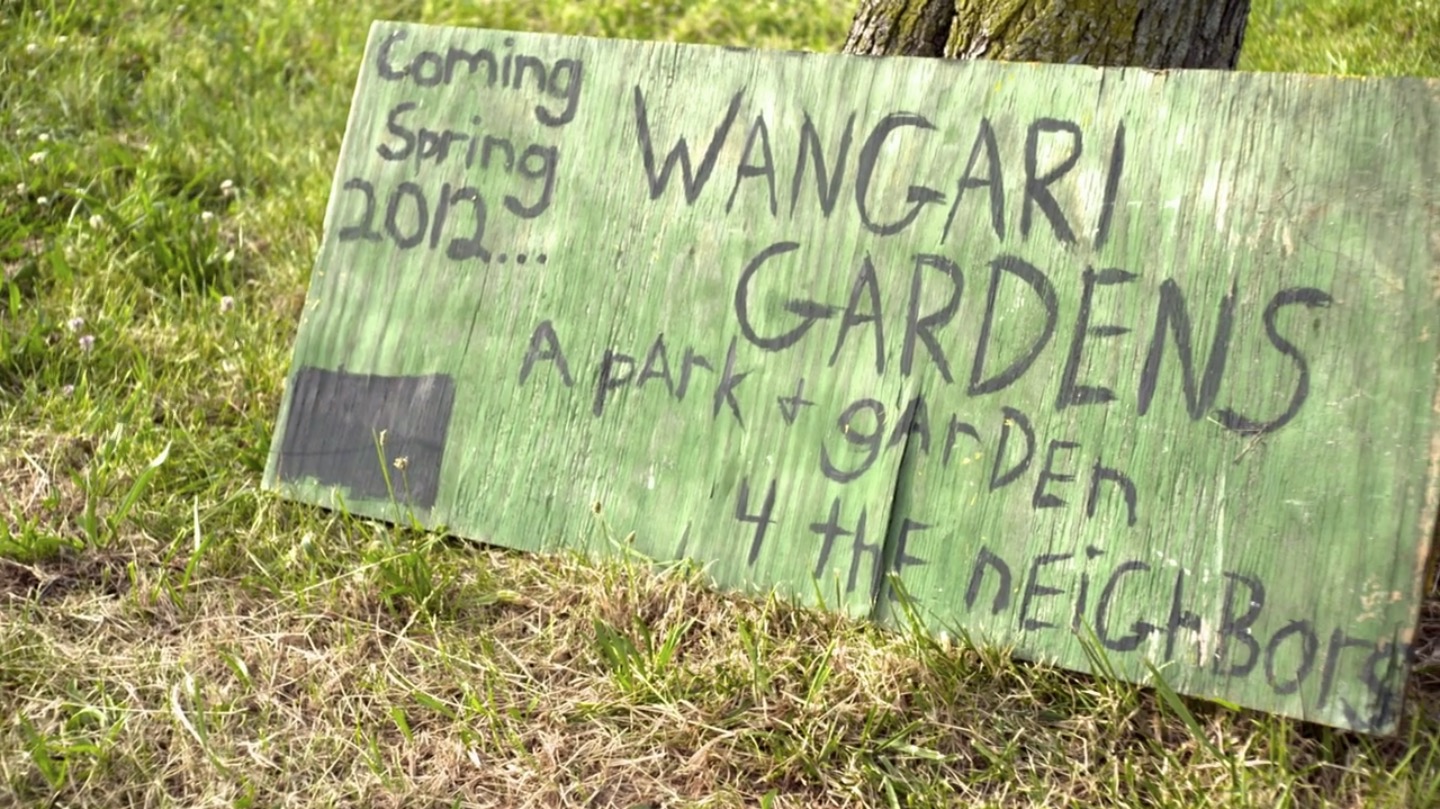 Coming
Spring
2012...
WANGARI
GARDENS
A pArk + gArDEn
4 thE nEiGhBors